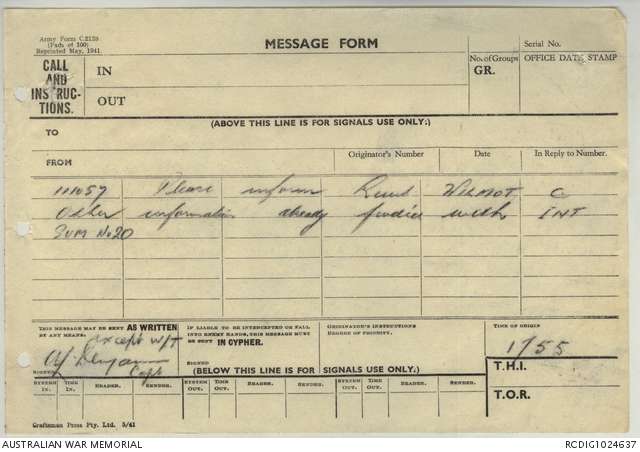 Army Form C.2128
(Pads of 100)
Reprinted May, 1941.
MESSAGE FORM
Serial No.
CALL AND INSTRUC-TIONS.
IN
OUT
No. of Groups GR.
OFFICE DATE STAMP
(ABOVE THIS LINE IS FOR SIGNALS USE ONLY.)
TO
FROM
Originator's Number
Date
In Reply to Number.
111057 Please inform WILMOT
Other information already with INT
SUM No 20
THIS MESSAGE MAY BE SENT AS WRITTEN BY ANY MEANS.
except W/T
SIGNED
Capt
IF LIABLE TO BE INTERCEPTED OR FALL INTO ENEMY HANDS, THIS MESSAGE MUST BE SENT IN CYPHER.
SIGNED
ORIGINATOR'S INSTRUCTIONS
DEGREE OF PRIORITY.
TIME OF ORIGIN
1755
(BELOW THIS LINE IS FOR SIGNALS USE ONLY.)
T.H.I.
T.O.R.
SYSTEM IN. TIME IN. READER. SENDER. SYSTEM OUT. TIME OUT. READER. SENDER. SYSTEM OUT. TIME OUT. READER. SENDER.
Craftsman Press Pty. Ltd. 5/41
AUSTRALIAN WAR MEMORIAL
RCDIG1024637